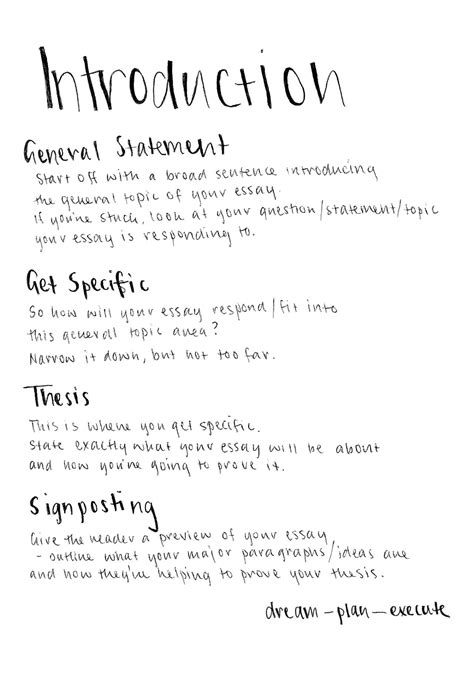 Introduction
General Statement
Start off with a broad sentence introducing
the general topic of your essay.
If you're stuck, look at your question/statement/topic
your essay is responding to.
Get Specific
So how will your essay respond/fit into
this general topic area?
Narrow it down, but not too far.
Thesis
This is where you get specific.
State exactly what your essay will be about
and how you're going to prove it.
Signposting
Give the reader a preview of your essay
- outline what your major paragraphs/ideas are
and how they're helping to prove your thesis.
dream-plan-execute